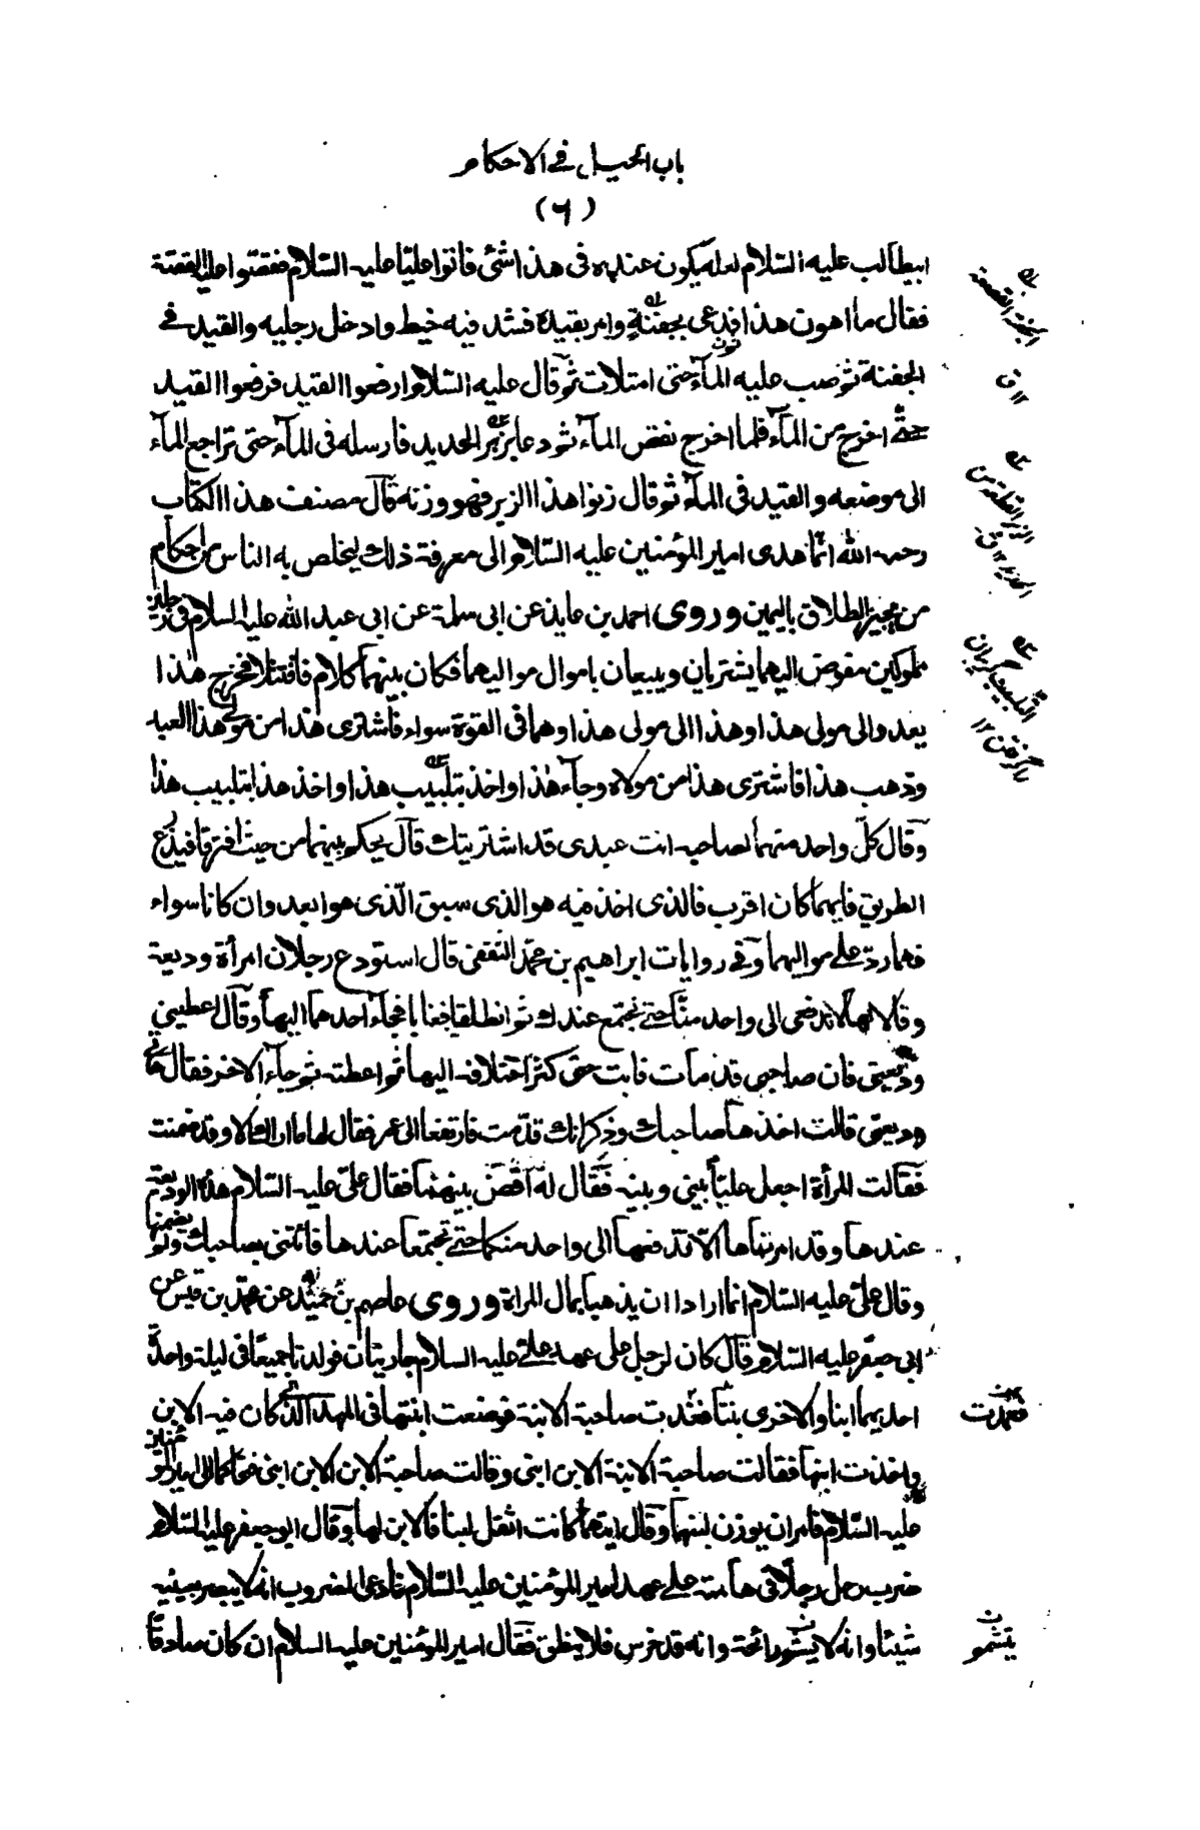 باب الحيل في الاحكام
(٦)
ابيطالب عليه السلام لعله يكون عنده فى هذا شئ فاتوا عليّا عليه السّلام فقصّوا عليه القصّة
فقال ما اهون هذا فدعى بجفنةٍ وامر بقيده فشد فيه خيط وادخل رجليه والقيد فے
الجفنة ثم صب عليه المآء حتى امتلات ثم قال عليه السّلام ارفعوا القيد فرفعوا القيد
حتّے اخرج من المآء فلما اخرج نقص المآء ثم دعا بزبر الحديد فارسله فى المآء حتى تراجع المآء
الى موضعه والقيد فى المآء ثم قال زنوا هذا الزبر فهو وزنه قال مصنف هذا الكتاب
رحمه الله انّما هدى امير المؤمنين عليه السّلام الى معرفة ذلك ليخلص به الناس من احكام
من يجيز الطلاق باليمين وروى احمد بن عايذ عن ابى سلمة عن ابى عبد الله عليه السلام فى رجلين
مملوكين مفوض اليهما يشتريان ويبيعان باموال مواليهما فكان بينهما كلام فاقتتلا فخرج هذا
يعدو الى مولى هذا وهذا الى مولى هذا وهما فى القوة سواء فاشترى هذا من مولى هذا العبد
وذهب هذا فاشترى هذا من مولاه وجآء هٰذا واخذ بتلبيب هذا واخذ هذا بتلبيب هذا
وقال كلّ واحد منهما لصاحبه انت عبدى قد اشتريتك قال يحكم بينهما من حيث افترقا فيذرع
الطريق فايهما كان اقرب فالذى اخذ فيه هو الذى سبق الّذى هو ابعد وان كانا سواء
فهما ردّ علے مواليهما وفے روايات ابراهيم بن محمّد الثقفى قال استودع رجلان امرأة وديعة
وقالا لها لا تدفعى الى واحد منّا حتے نجتمع عندك ثم انطلقا فغابا فجآء احدهما اليها وقال اعطينى
وديعتى فان صاحبى قد مات فابت حتى كثر اختلافه اليها ثم اعطته ثم جآء الاخر فقال هاتى
وديعتى قالت اخذها صاحبك وذكر انك قد مت فارتفعا الى عمر فقال لها ما اراك الا وقد ضمنت
فقالت المرأة اجعل عليّاً بينى وبينه فقال له اقض بينهما فقال علىّ عليه السّلام هذه الوديعة
عندها وقد امرتماها الّا تدفعها الى واحد منكما حتے تجتمعا عندها فائتنى بصاحبك ولم يضمنها
وقال علىّ عليه السّلام انما ارادا ان يذهبا بمال المراة وروى عاصم بن حميد عن محمّد بن قيس عن
ابى جعفر عليه السّلام قال كان لرجل على عهد علےّ عليه السلام جاريتان فولدتا جميعًا فى ليلة واحدة
احديهما ابنا والاخرى بنتا فغدت صاحبة الابنة فوضعت ابنتها فى المهد الذى كان فيه الابن
واخذت ابنها فقالت صاحبة الابنة الابن ابنى وقالت صاحبة الابن الابن ابنى فتحاكما الى امير المؤمنين
عليه السّلام فامر ان يوزن لبنهما وقال ايتهما كانت اثقل لبنا فالابن لها وقال ابو جعفر عليه السّلام
ضرب رجل رجلاً فى هامته علے عهد امير المؤمنين عليه السّلام فادعى المضروب انه لا يبصر بعينيه
شيئا وانه لا يشم رائحة وانه قد خرس فلا ينطق فقال امير المؤمنين عليه السلام ان كان صادقًا
الجفنة القصعة
١٢ ق
الزبر القطعة من
الحديد ١٢ ق
التلبيب گريبان
گرفتن ١٢
فعمدت
يتشمم